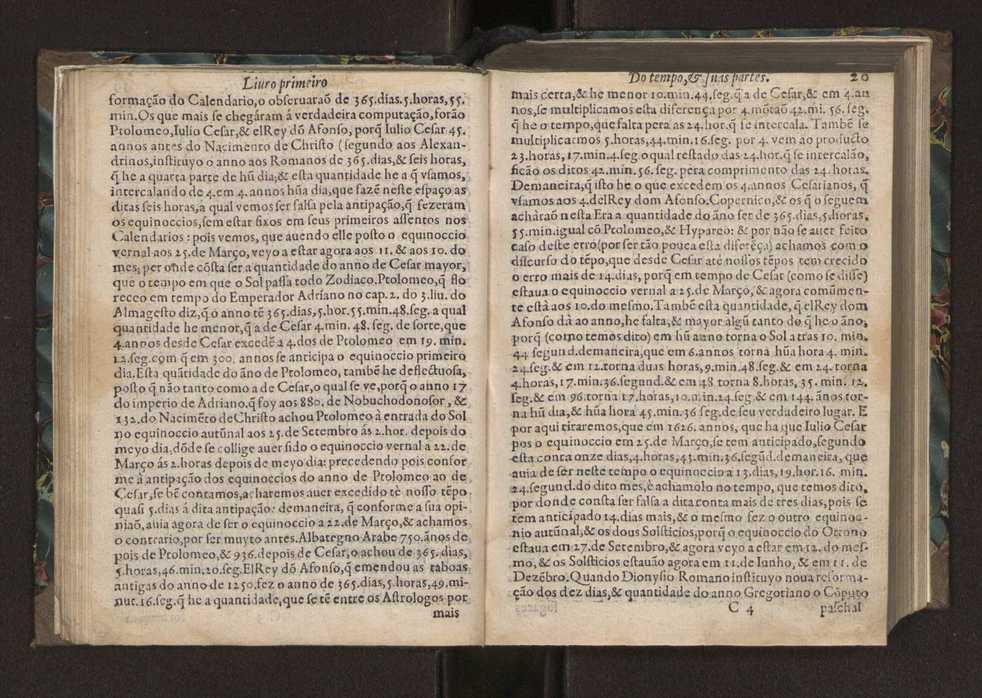 Liuro primeiro
formação do Calendario, o obseruaraõ de 365.dias.5.horas,55.
min.Os que mais se chegáram á verdadeira computação, forão
Ptolomeo,Iulio Cesar,& elRey dõ Afonso, porq̃ Iulio Cesar 45.
annos antes do Nacimento de Christo (segundo aos Alexan-
drinos,instituyo o anno aos Romanos de 365.dias,& seis horas,
q̃ he a quarta parte de hũ dia,& esta quantidade he a q̃ vsamos,
intercalando de 4.em 4.annos hũa dia,que fazẽ neste espaço as
ditas seis horas,a qual vemos ser falsa pela antipação,q̃ fezeram
os equinoccios,sem estar fixos em seus primeiros assentos nos
Calendarios : pois vemos, que auendo elle posto o equinoccio
vernal aos 25.de Março, veyo a estar agora aos 11.&aos 10.do
mes; per onde cõsta ser a quantidade do anno de Cesar mayor,
que o tempo em que o Sol passa todo Zodiaco.Ptolomeo,q̃ flo
receo em tempo do Emperador Adriano no cap.2. do 3.liu. do
Almagesto diz,q̃ o anno tẽ 365.dias,5.hor.55.min.48.seg.a qual
quantidade he menor,q̃ a de Cesar 4.min. 48. seg. de sorte,que
4.annos desde Cesar excedẽ a 4.dos de Ptolomeo em 19. min.
12.seg.com q̃ em 300. annos se anticipa o equinoccio primeiro
dia.Esta quãtidade do ãno de Ptolomeo, tambẽ he deflectuosa,
posto q̃ não tanto como a de Cesar,o qual se ve,porq̃ o anno 17
do imperio de Adriano.q̃ foy aos 880. de Nobuchodonosor, &
132.do Nacimẽto deChristo achou Ptolomeo à entrada do Sol
no equinoccio autũnal aos 25.de Setembro ás 2.hor. depois do
meyo dia,dõde se collige auer sido o equinoccio vernal a 22.de
Março ás 2.horas depois de meyo dia: precedendo pois confor
me à antipação dos equinoccios do anno de Ptolomeo ao de
Cesar,se bẽ contamos,acharemos auer excedido tẽ nosso tẽpo
quasi 5.dias á dita antipação: demaneira, q̃ conforme a sua opi-
niaõ,auia agora de ser o equinoccio a 22.de Março,& achamos
o contrario,por ser muyto antes.Albategno Arabe 750.ãnos de
pois de Ptolomeo,& 936.depois de Cesar,o achou de 365.dias,
5.horas,46.min,20.seg.ElRey dõ Afonso,q̃ emendou as taboas
antigas do anno de 1250.fez o anno de 365.dias,5.horas,49.mi-
nut.16.seg.q̃ he a quantidade,que se tẽ entre os Astrologos por
mais
Do tempo,& suas partes. 20
mais certa,& he menor 10.min.44.seg.q̃ a de Cesar,& em 4.an
nos,se multiplicamos esta diferença por 4.mõtaõ 42.mi. 56. seg.
q̃ he o tempo,que falta pera as 24.hor.q̃ se intercala. Tambẽ se
multiplicarmos 5.horas,44.min.16.seg. por 4. vem ao producto
23.horas,17.min.4.seg.o qual restado das 24.hor.q̃ se intercalão,
ficão os ditos 42.min.56.seg. pera comprimento das 24.horas.
Demaneira,q̃ isto he o que excedem os 4.annos Cesarianos, q̃
vsamos aos 4.delRey dom Afonso.Copernico,& os q̃ o seguem
acháraõ nesta Era a quantidade do ãno ser de 365.dias,5.horas,
55.min.igual cõ Ptolomeo,& Hyparco: & por não se auer feito
caso deste erro(por ser tão pouca esta diferẽça) achamos com o
discurso do tẽpo,que desde Cesar até nossos tẽpos tem crecido
o erro mais de 14.dias, porq̃ em tempo de Cesar (como se disse)
estaua o equinoccio vernal a 25.de Março,& agora comũmen-
te està aos 10.do mesmo.Tambẽ esta quantidade, q̃ elRey dom
Afonso dà ao anno,he falta,& mayor algũ tanto do q̃ he o ãno,
porq̃ (como temos dito) em hũ anno torna o Sol atras 10. min.
44 segund.demaneira,que em 6.annos torna hũa hora 4. min.
24.seg.& em 12.torna duas horas,9.min.48.seg.& em 24. torna
4.horas,17.min.36.segund.& em 48 torna 8.horas,35. min. 12,
seg.& em 96.torna 17.horas,10.min.24.seg.& em 144. ãnos tor-
na hũ dia,& hũa hora 45.min.36 seg.de seu verdadeiro lugar. E
por aqui tiraremos,que em 1626.annos, que ha que Iulio Cesar
pos o equinoccio em 25.de Março,se tem anticipado,segundo
esta conta onze dias,4.horas,43.min.36.segũd.demaneira, que
auia de ser neste tempo o equinoccio a 13.dias,19.hor.16. min.
24.segund.do dito mes,& achamolo no tempo, que temos dito,
por donde consta ser falsa a dita conta mais de tres dias,pois se
tem anticipado 14.dias mais,& o mesmo fez o outro equinoc-
nio autũnal,& os dous Solsticios,porq̃ o equinoccio do Otono
estaua em 27.de Setembro,& agora veyo a estar em 12. do mes-
mo,& os Solsticios estauão agora em 11.de Iunho, & em 11. de
Dezẽbro.Quando Dionysio Romano instituyo noua reforma-
ção dos dez dias,& quantidade do anno Gregoriano o Cõputo
C 4 paschal